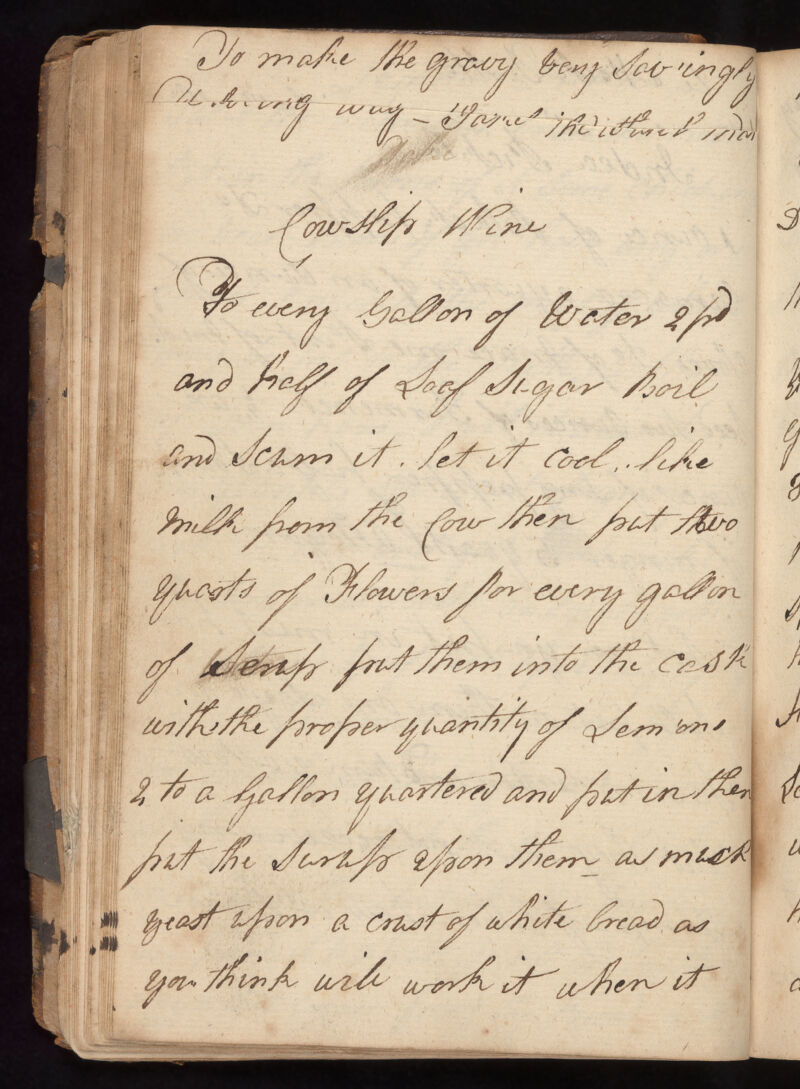 To make the gravy very Sav'ingly
way – the
Cowslip Wine
To every Gallon of Water 2 pd
and half of Loaf Sugar Boil
and Scum it . let it cool .. like
Milk from the Cow then put two
quarts of Flowers for every gallon
of Serup put them into the cask
with the proper quantity of Lemons
2 to a Gallon quartered and put in then
put the Surup upon them as much
yeast upon a crust of white bread as
you think will work it when it